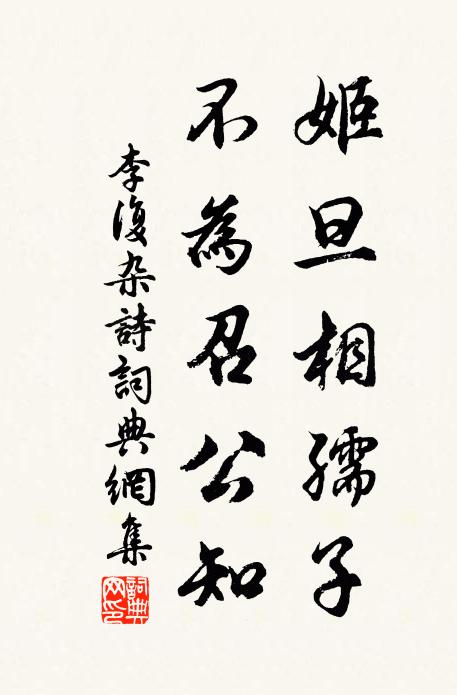 姬旦相孺子
不為召公知
李復杂詩詞典網集
詞典網印